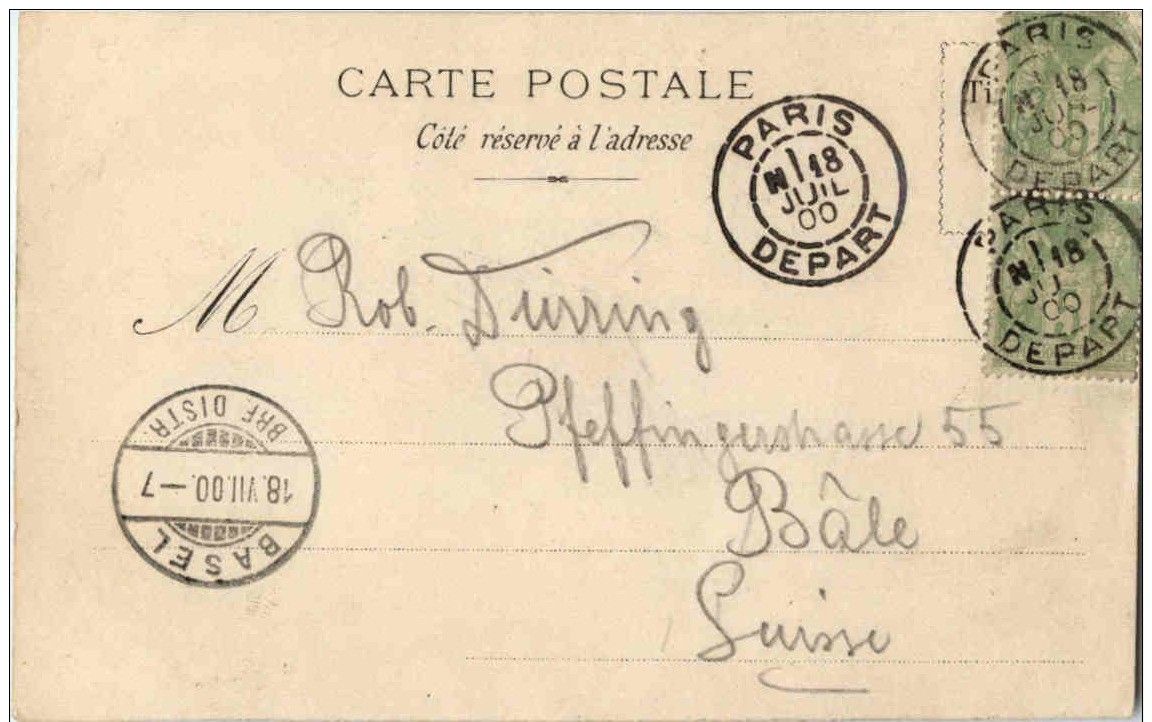 CARTE POSTALE
Côté réservé à l'adresse
PARIS
18
JUIL
00
DEPART
PARIS
18
00
DEPART
PARIS
18
00
DEPART
M Rob. Dürring
Pfeffingerstrasse 55
Bâle
Suisse
BASEL
18.VII.00.–7
BRF. DISTR.